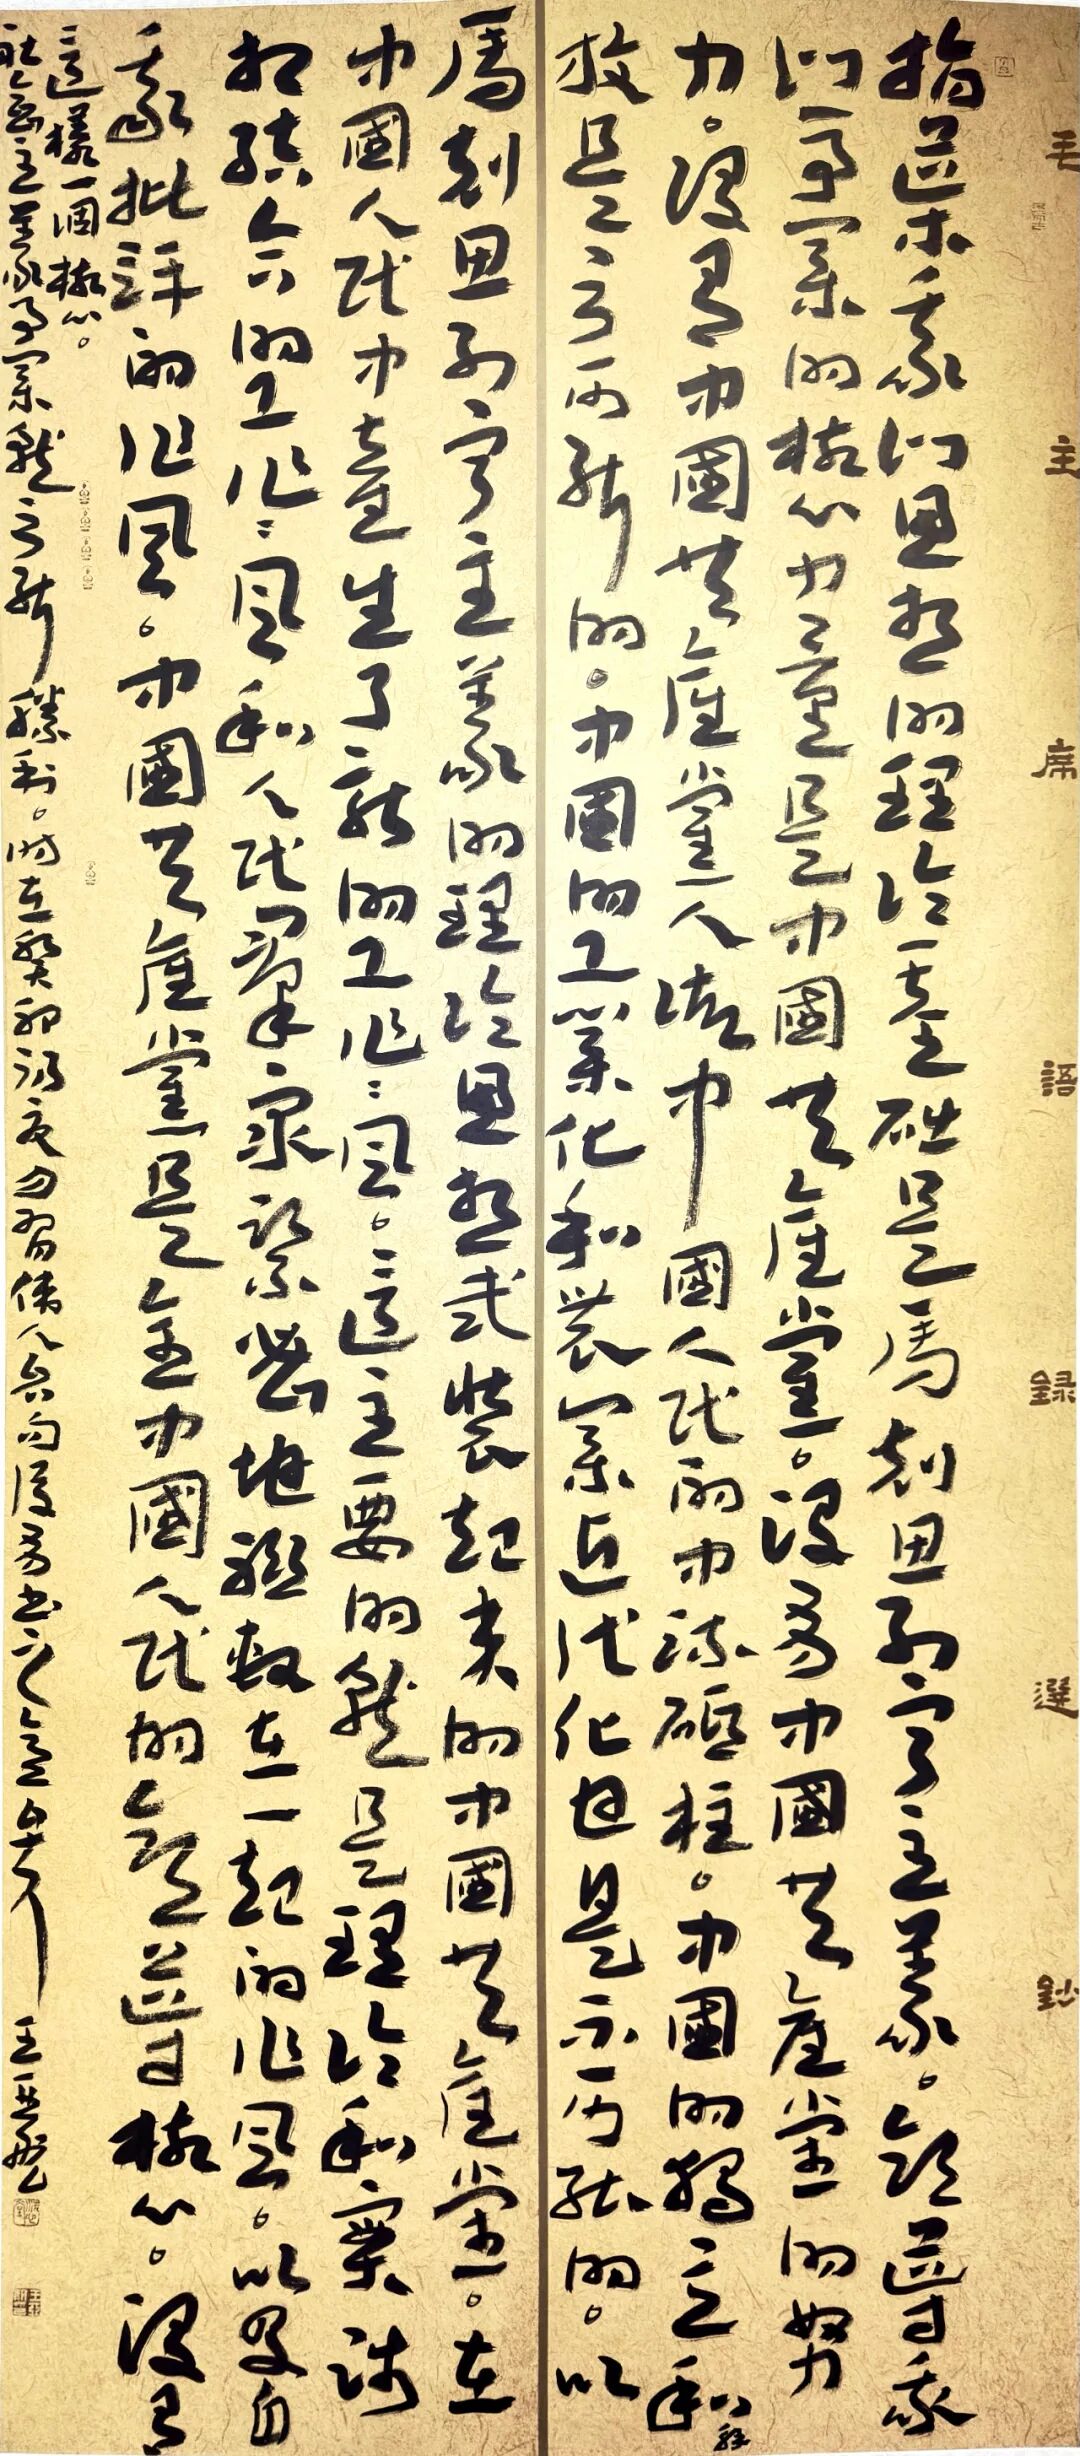 毛主席語録選鈔
指導我们思想的理論基础是馬克思列寧主義。領導我
们事業的核心力量是中國共產黨。没有中國共產黨的努
力。没有中國共產黨人做中國人民的中流砥柱。中國的獨立和解
放是不可能的。中國的工業化和農業近代化也是不可能的。以
馬克思列寧主義的理論思想武裝起来的中國共產黨。在
中國人民中產生了新的工作作風。這主要的就是理論和實踐
相結合的工作作風和人民羣衆緊密地聯繫在一起的作風。以及自
我批評的作風。中國共產黨是全中國人民的領導核心。没有
這樣一個核心。
社會主義事業就不能勝利。時在癸卯初夏習偉人句書之王